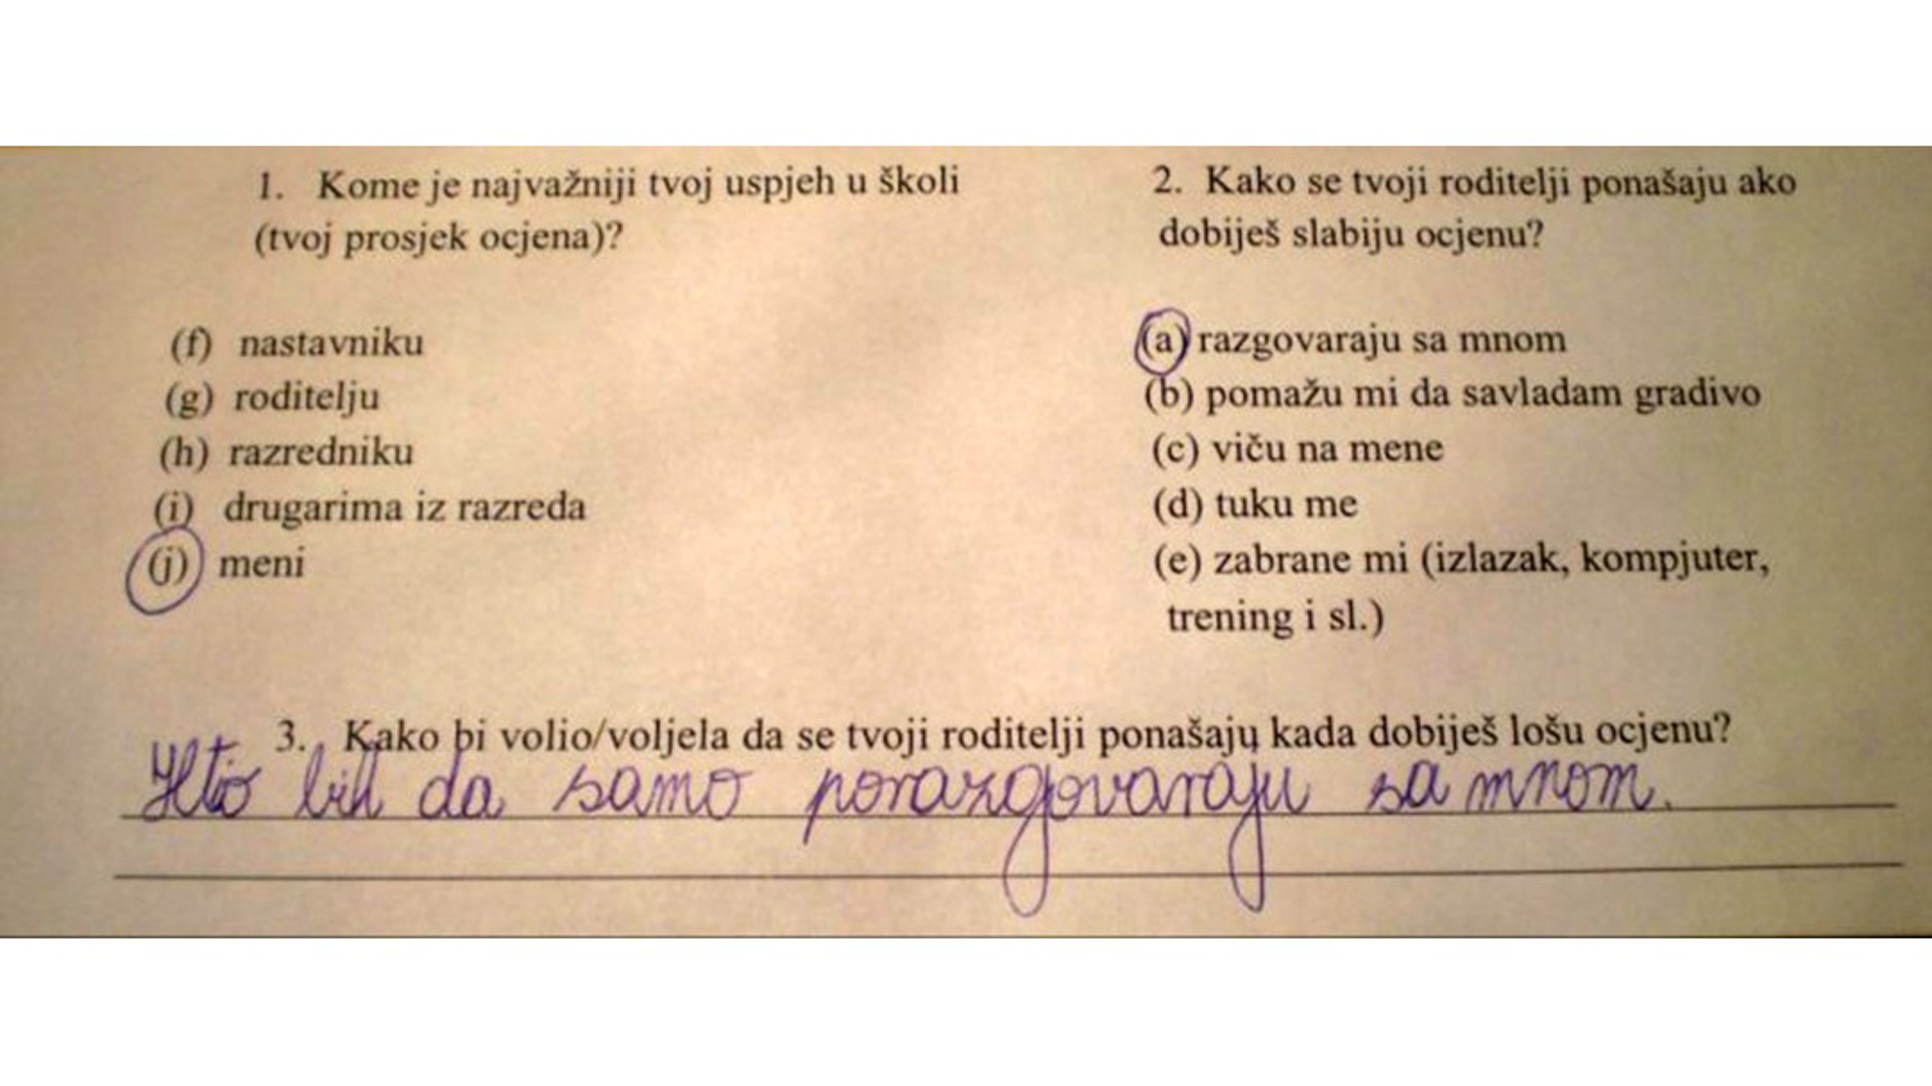 1. Kome je najvažniji tvoj uspjeh u školi
(tvoj prosjek ocjena)?
(f) nastavniku
(g) roditelju
(h) razredniku
(i) drugarima iz razreda
(j) meni
2. Kako se tvoji roditelji ponašaju ako
dobiješ slabiju ocjenu?
(a) razgovaraju sa mnom
(b) pomažu mi da savladam gradivo
(c) viču na mene
(d) tuku me
(e) zabrane mi (izlazak, kompjuter,
trening i sl.)
3. Kako bi volio/voljela da se tvoji roditelji ponašaju kada dobiješ lošu ocjenu?
Htio bih da samo porazgovaraju sa mnom.